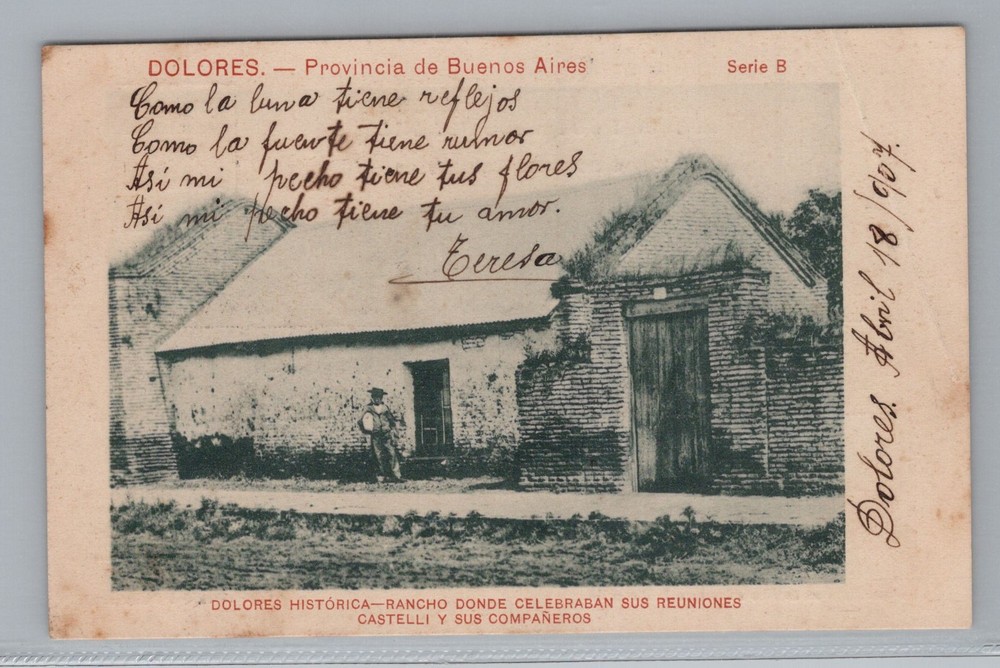 DOLORES. — Provincia de Buenos Aires
Serie B
Como la luna tiene reflejos
Como la fuente tiene rumor
Así mi pecho tiene tus flores
Así mi pecho tiene tu amor.
Teresa
Dolores. Abril 18/907.
DOLORES HISTÓRICA—RANCHO DONDE CELEBRABAN SUS REUNIONES
CASTELLI Y SUS COMPAÑEROS